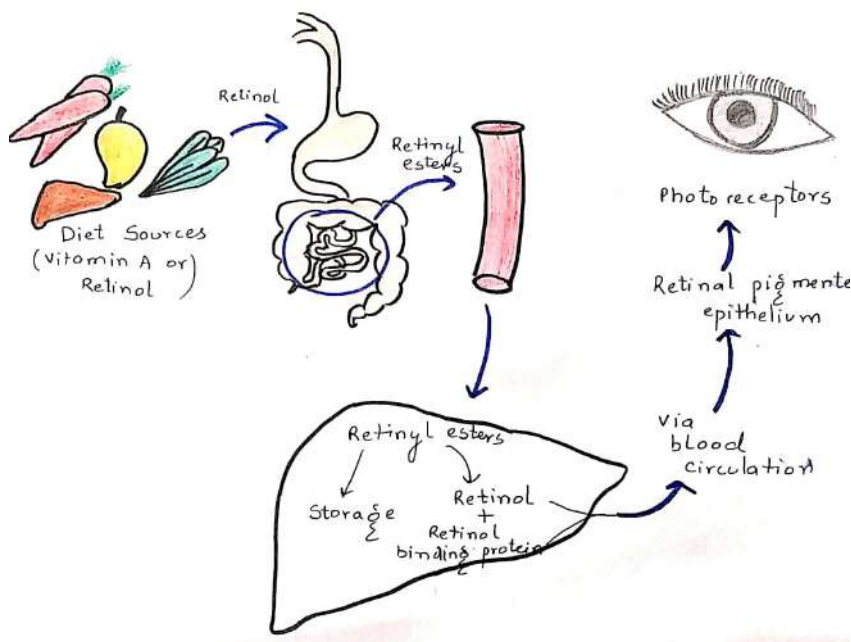 Retinol
Diet Sources
(Vitamin A or)
Retinol
Retinyl
esters
Retinyl esters
Storage
Retinol
+
Retinol
binding protein
via
blood
circulation
Retinal pigmente
epithelium
Photo receptors